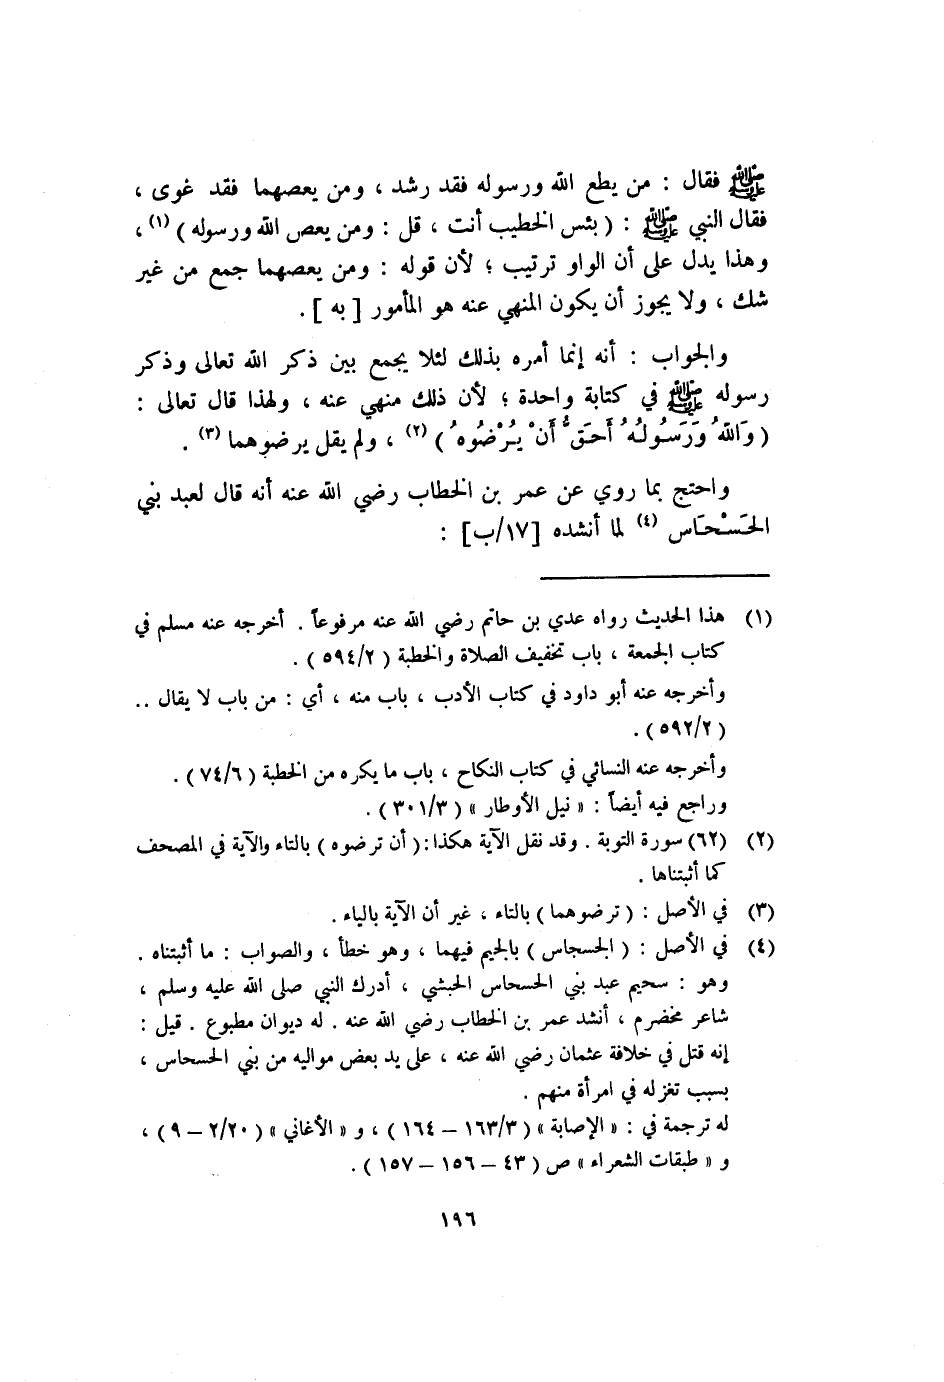 ﷺ فقال : من يطع الله ورسوله فقد رشد ، ومن يعصهما فقد غوى ،
فقال النبي ﷺ : ( بئس الخطيب أنت ، قل : ومن يعص الله ورسوله ) (١) ،
وهذا يدل على أن الواو ترتيب ؛ لأن قوله : ومن يعصهما جمع من غير
شك ، ولا يجوز أن يكون المنهي عنه هو المأمور [ به ] .
والجواب : أنه إنما أمره بذلك لئلا يجمع بين ذكر الله تعالى وذكر
رسوله ﷺ في كتابة واحدة ؛ لأن ذلك منهي عنه ، ولهذا قال تعالى :
( وَاللهُ وَرَسُولُهُ أَحَقُّ أَنْ يُرْضُوهُ ) (٢) ، ولم يقل يرضوهما (٣) .
واحتج بما روي عن عمر بن الخطاب رضي الله عنه أنه قال لعبد بني
الحَسْحَاس (٤) لما أنشده [١٧/ب] :
(١) هذا الحديث رواه عدي بن حاتم رضي الله عنه مرفوعاً . أخرجه عنه مسلم في
كتاب الجمعة ، باب تخفيف الصلاة والخطبة ( ٥٩٤/٢ ) .
وأخرجه عنه أبو داود في كتاب الأدب ، باب منه ، أي : من باب لا يقال ..
( ٥٩٢/٢ ) .
وأخرجه عنه النسائي في كتاب النكاح ، باب ما يكره من الخطبة ( ٧٤/٦ ) .
وراجع فيه أيضاً : « نيل الأوطار » ( ٣٠١/٣ ) .
(٢) (٦٢) سورة التوبة . وقد نقل الآية هكذا : ( أن ترضوه ) بالتاء والآية في المصحف
كما أثبتناها .
(٣) في الأصل : ( ترضوهما ) بالتاء ، غير أن الآية بالياء .
(٤) في الأصل : ( الجسجاس ) بالجيم فيهما ، وهو خطأ ، والصواب : ما أثبتناه .
وهو : سحيم عبد بني الحسحاس الحبشي ، أدرك النبي صلى الله عليه وسلم ،
شاعر مخضرم ، أنشد عمر بن الخطاب رضي الله عنه . له ديوان مطبوع . قيل :
إنه قتل في خلافة عثمان رضي الله عنه ، على يد بعض مواليه من بني الحسحاس ،
بسبب تغزله في امرأة منهم .
له ترجمة في : « الإصابة » ( ١٦٣/٣ – ١٦٤ ) ، و « الأغاني » ( ٢/٢٠ – ٩ ) ،
و « طبقات الشعراء » ص ( ٤٣ – ١٥٦ – ١٥٧ ) .
١٩٦